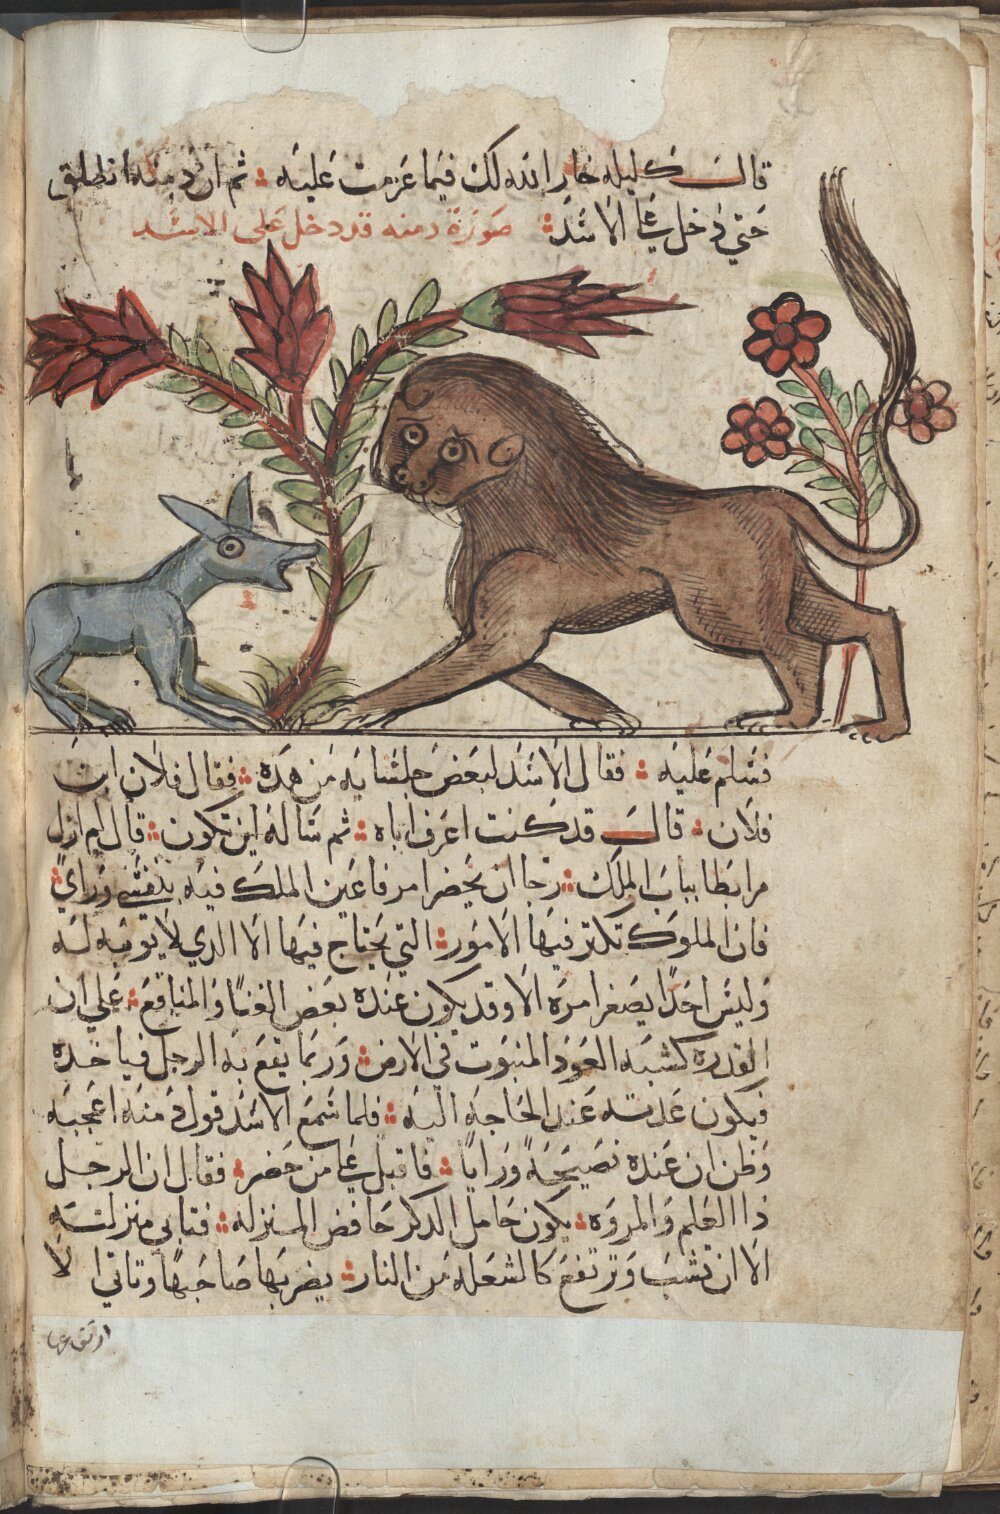 قال كليله خار الله لك فيما عزمت عليه ؞ ثم ان دمنه انطلق
حتي دخل علي الاسد ؞ صورة دمنه قد دخل على الاسد
فسلم عليه ؞ فقال الاسد لبعض جلسايه من هذه ؞ فقال فلان ابن
فلان ؞ قال قد كنت اعرف اباه ؞ ثم ساله اين تكون ؞ قال لم ازل
مرابطا بباب الملك ؞ رجا ان يحضر امر فاعين الملك فيه بنفسي وراي ؞
فان الملوك تكثر فيها الامور ؞ التي يحتاج فيها الا الدي لا يوبه له
وليس احدا يصغر امره الا وقد يكون عنده بعض الغنا والمنافع ؞ علي ان
القدره كشبه العود المنبوت في الارض ؞ وربما يقع به الرجل فياخده
فيكون عدته عند الحاجه اليه ؞ فلما سمع الاسد قول دمنه اعجبه
وظن ان عنده نصيحة ورايا ؞ فاقبل علي من حضر ؞ فقال ان الرجل
دا العلم والمروه ؞ يكون خامل الدكر خافض المنزله ؞ فتابي منزلته
الا ان تشب وترتفع كالشعله من النار ؞ يضربها صاحبها وتابي الا